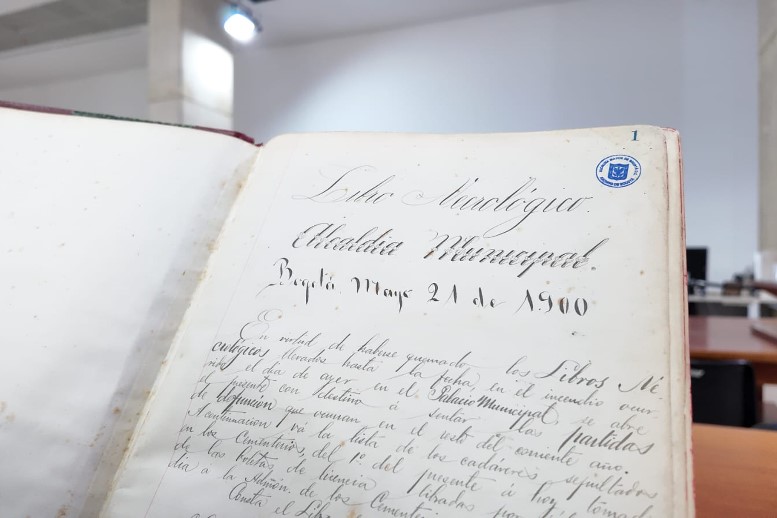 1
Libro Necrológico.
Alcaldia Municipal.
Bogotá Mayo 21 de 1900
En virtud de haberse quemado los Libros Né-
crológicos llevados hasta la fecha, en el incendio ocur-
rido el dia de ayer en el Palacio Municipal, se abre
el presente con destino á sentar las partidas
de defunción que ocurran en el resto del corriente año.
A continuación vá la lista de los cadáveres sepultados
en los Cementerios, del 1º del presente á hoy, tomada
de las boletas de licencia libradas por
dia á la Admón. de los Cementerios
Consta el Libro